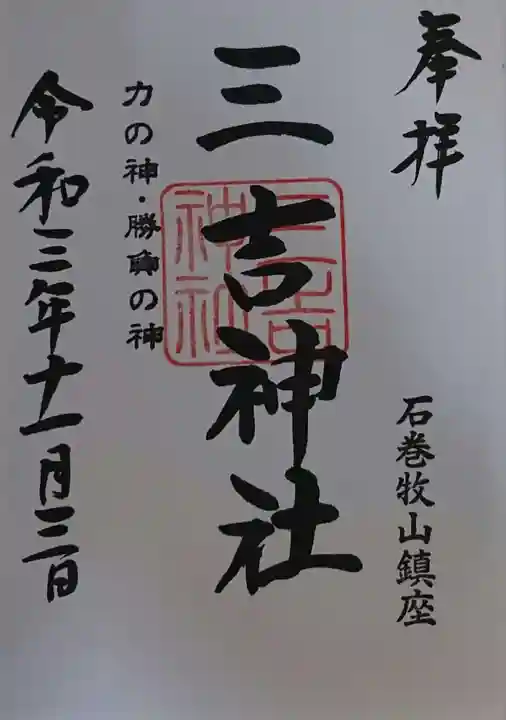 奉拝
石巻牧山鎮座
三吉神社
三吉神社
力の神・勝負の神
令和三年十一月三日